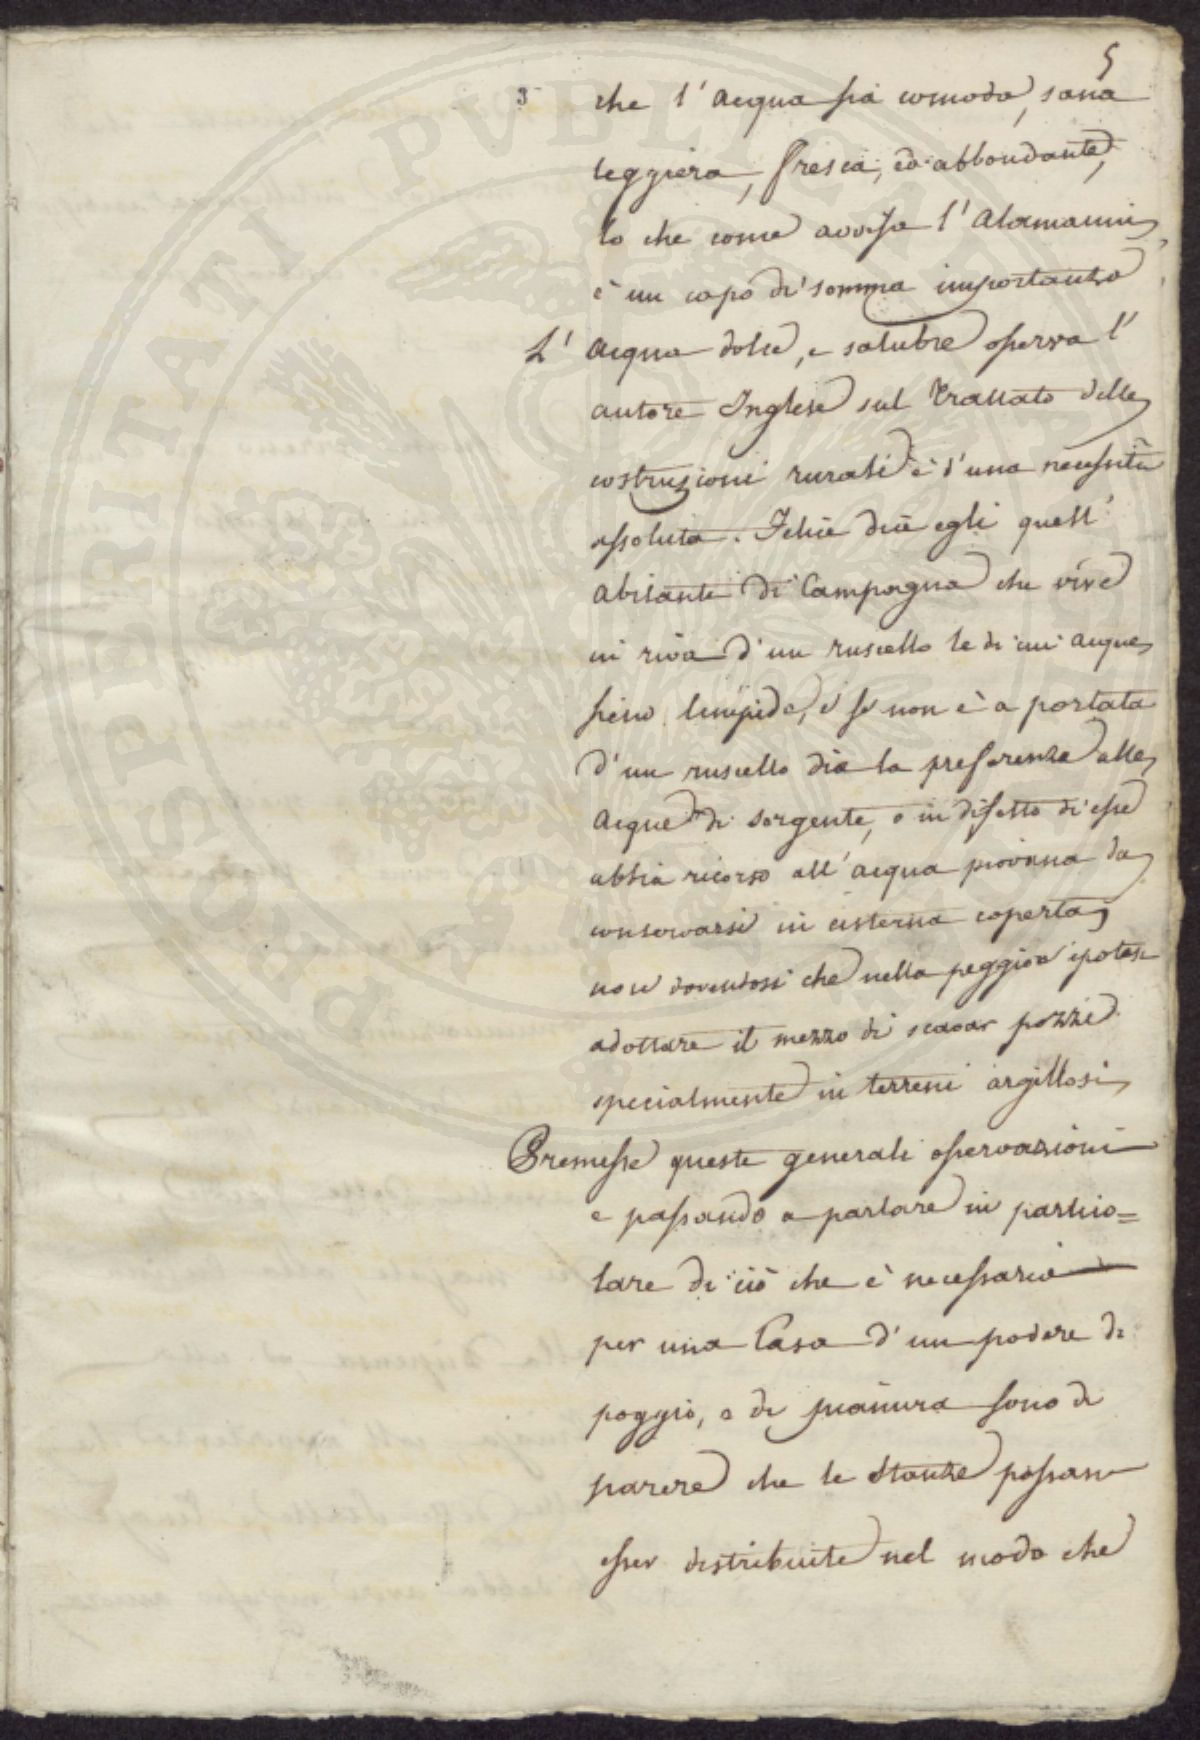 5
3 che l'acqua sia comoda, sana
leggiera, fresca, ed abbondante,
lo che come avvisa l'Alamanni,
è un capo di somma importanza
L'acqua dolce, e salubre osserva l'
autore Inglese sul Trattato delle
costruzioni rurali è d'una necessità
assoluta. Felice dice egli quell'
abitante di Campagna che vive
in riva d'un ruscello le di cui acque
sieno limpide, e se non è a portata
d'un ruscello dia la preferenza alle
acque di sorgente, o in difetto di esse
abbia ricorso all'acqua piovana da
conservarsi in cisterna coperta,
non dovendosi che nella peggior ipotesi
adottare il mezzo di scavar pozzi
specialmente in terreni argillosi,
Premesse queste generali osservazioni
e passando a parlare in partico=
lare di ciò che è necessario
per una Casa d'un podere di
poggio, o di pianura sono di
parere che le stanze possano
esser distribuite nel modo che
PROSPERITATI PUBLICAE